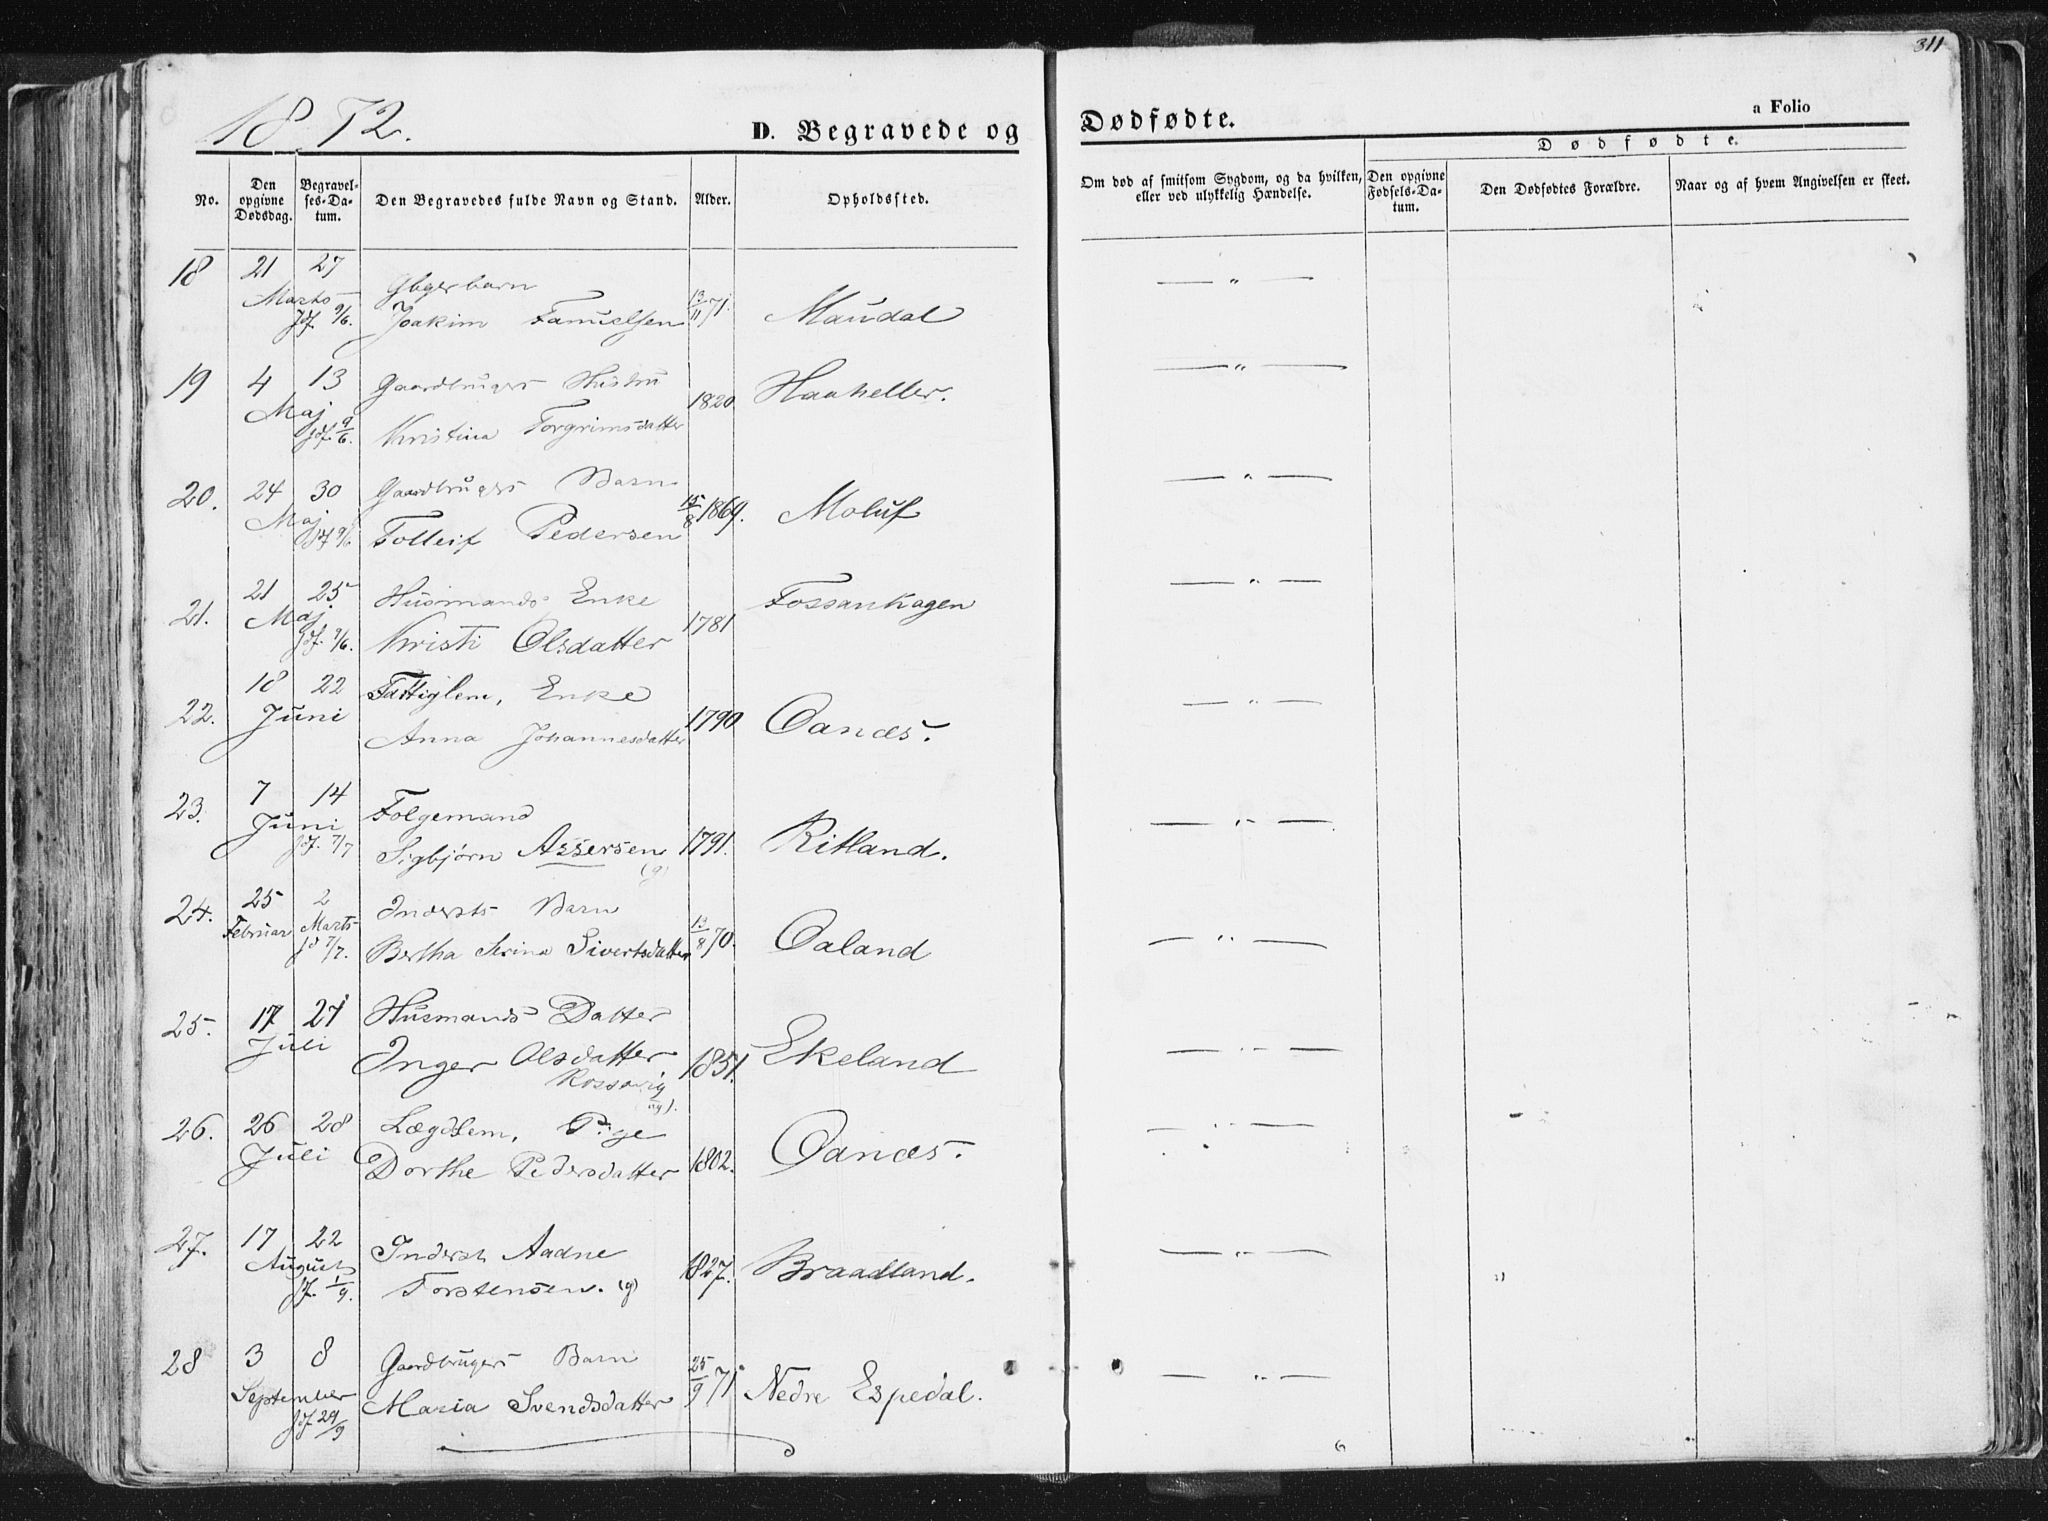 311
1872.
D. Begravede og Dødfødte.
a Folio
Dødfødte.
No.
Den opgivne Dødsdag.
Begravelses-Datum.
Den Begravedes fulde Navn og Stand.
Alder.
Opholdssted.
Om død af smitsom Sygdom, og da hvilken, eller ved ulykkelig Hændelse.
Den opgivne Fødsels-Datum.
Den Dødfødtes Forældre.
Naar og af hvem Angivelsen er skeet.
18 21 27
Marts Jdf. 9/6.
Gbgerbarn
Joakim Tanuelsen 13/11 71. Maudal — " —
19 4 13 Gaardbrugers Hustru
Maj Jdf. 9/6. Kristina Torgrimsdatter 1820 Haaheller. — " —
20. 24 30 Gaardbrugers Barn
Maj Jdf 9/6 Tolleif Pedersen 15/8 1869. Moluf — " —
21. 21 25 Husmands Enke
Maj Jdf. 9/6. Kristi Olsdatter 1781 Fossanhagen — " —
22. 18 22 Fattiglem, Enke
Juni Anna Johannesdatter 1790 Oanæs. — " —
23. 7 14 Folgemand
Juni Jdf. 7/7 Sigbjørn Assersen (g) 1791. Ritland. — " —
24. 25 2 Inderts Barn
Februar Marts Jd 7/7. Bertha Serina Sivertsdatter 13/8 70. Oaland — " —
25. 17 21 Husmands Datter
Juli Inger Olsdatter 1851. Ekeland — " —
Rossavig
26. 26 28 Lægdslem, Pige
Juli Dorthe Pedersdatter 1802. Oanæs. — " —
27. 17 22 Inderst Aadne
August Jf. 1/9. Torstensen. (g) 1827. Braadland. — " —
28 3 8 Gaardbrugers Barn
September Jdf 29/9 Maria Svendsdatter 25/9 71 Nedre Espedal. — " —